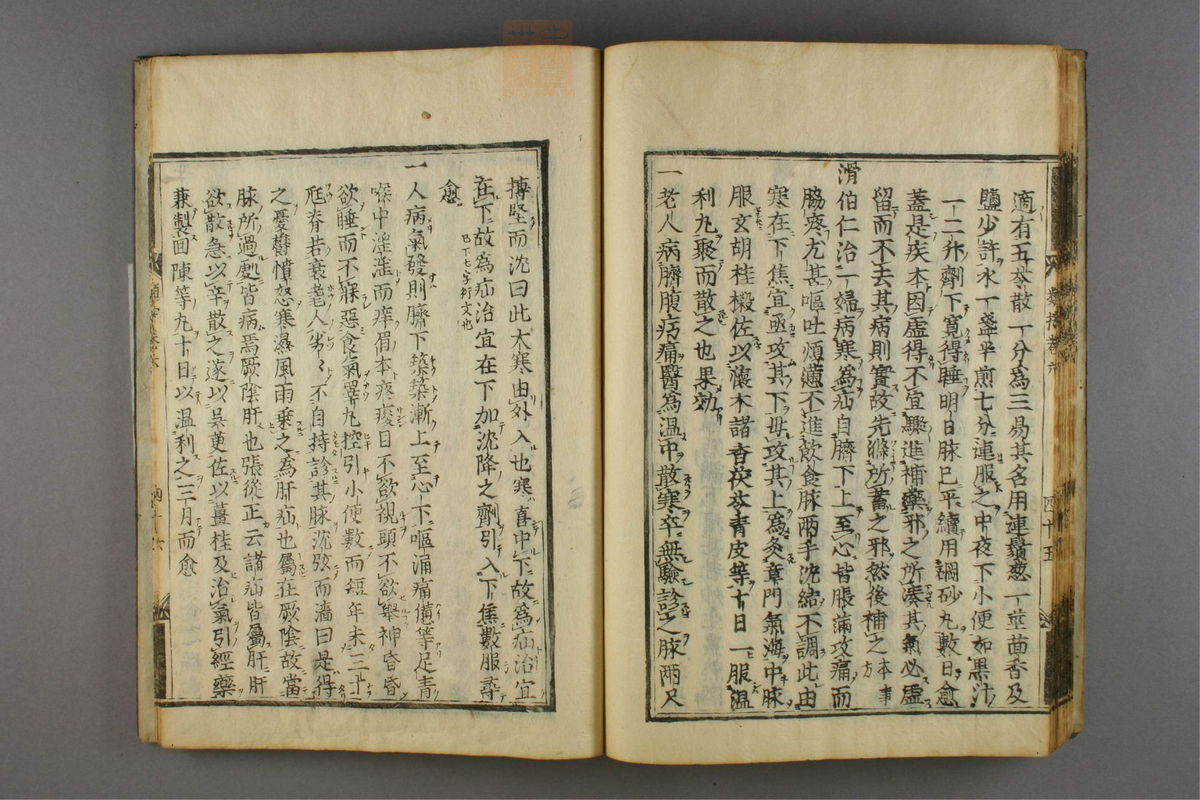 適有五苓散一分為三易其名用連鬚葱一莖茴香及
鹽少許水一盞半煎七分連服之中夜下小便如黒汁
一二升劑下寛得睡明日脉已平續用碙砂丸數日愈
蓋是疾本因虚得不宜驟進補藥邪之所湊其氣必虚
留而不去其病則實故先滌所蓄之邪然後補之本事方
滑伯仁治一婦病寒為疝自臍下上至心皆脹滿攻痛而
脇疼尤甚嘔吐煩懣不進飲食脉兩手沈結不調此由
寒在下焦宜亟攻其下毋攻其上為灸章門氣海中脘
服玄胡桂椒佐以蘹木諸香茯苓青皮等十日一服温
利丸聚而散之也果効
一老人病臍腹疞痛醫為温中散寒卒無驗診之脉兩尺
搏堅而沈曰此大寒由外入也寒喜中下故為疝治宜
在下故為疝治宜在下加沈降之劑引入下焦數服尋
愈 已下七字衍文也
一人病氣發則臍下築築漸上至心下嘔涌痛懣等足青
喉中淫淫而痒眉本疼痠目不欲視頭不欲舉神昏昏
欲睡而不寐惡食氣睪丸控引小便數而短年未三十
尫脊若衰耄人劣々不自持診其脉沈弦而濇曰是得
之憂鬱憤怒寒濕風雨乗之為肝疝也屬在厥陰故當
脉所過處皆病焉厥陰肝也張従正云諸疝皆屬肝肝
欲散急以辛散之遂以吳茰佐以薑桂及治氣引經藥
兼製回陳等丸十日以温利之三月而愈
四十五